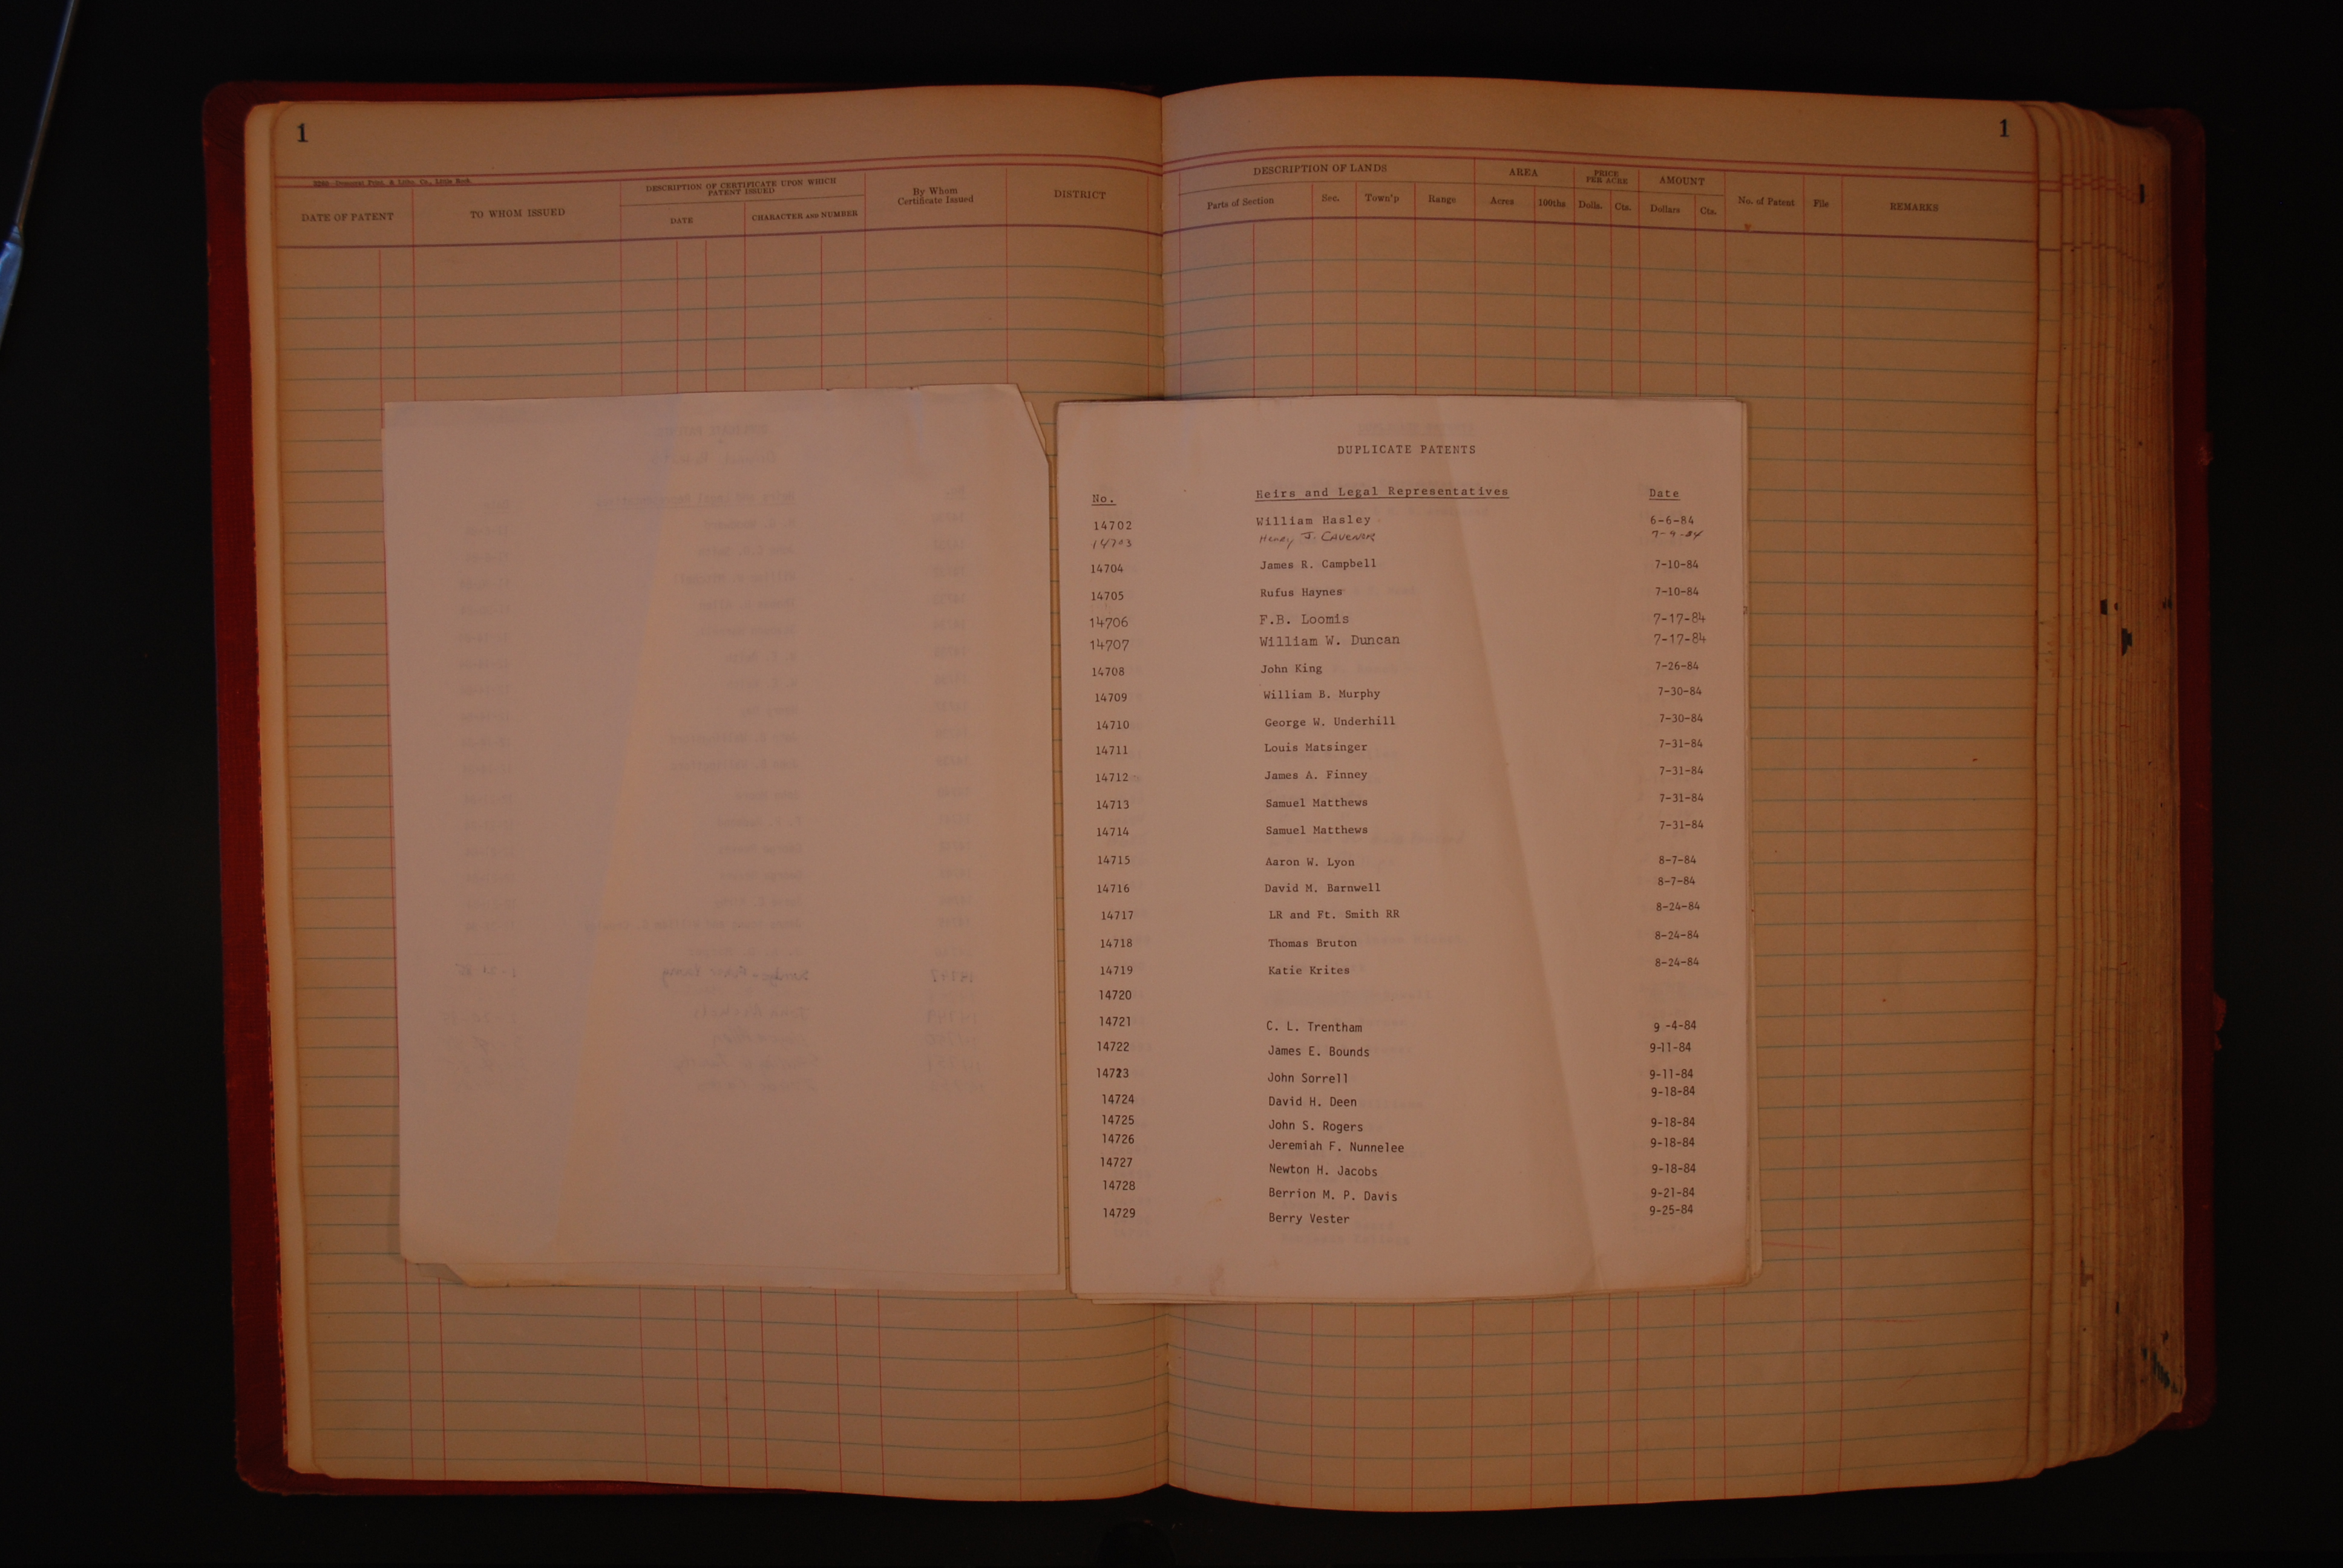 1
1
3260—Democrat Print. & Litho. Co., Little Rock.
DATE OF PATENT
TO WHOM ISSUED
DESCRIPTION OF CERTIFICATE UPON WHICH PATENT ISSUED
DATE
CHARACTER AND NUMBER
By Whom Certificate Issued
DISTRICT
DESCRIPTION OF LANDS
Parts of Section
Sec.
Town'p
Range
AREA
Acres
100ths
PRICE PER ACRE
Dolls.
Cts.
AMOUNT
Dollars
Cts.
No. of Patent
File
REMARKS
DUPLICATE PATENTS
No. Heirs and Legal Representatives Date
14702 William Hasley 6-6-84
14703 Henry J. Cavener 7-9-84
14704 James R. Campbell 7-10-84
14705 Rufus Haynes 7-10-84
14706 F.B. Loomis 7-17-84
14707 William W. Duncan 7-17-84
14708 John King 7-26-84
14709 William B. Murphy 7-30-84
14710 George W. Underhill 7-30-84
14711 Louis Matsinger 7-31-84
14712 James A. Finney 7-31-84
14713 Samuel Matthews 7-31-84
14714 Samuel Matthews 7-31-84
14715 Aaron W. Lyon 8-7-84
14716 David M. Barnwell 8-7-84
14717 LR and Ft. Smith RR 8-24-84
14718 Thomas Bruton 8-24-84
14719 Katie Krites 8-24-84
14720
14721 C. L. Trentham 9 -4-84
14722 James E. Bounds 9-11-84
14723 John Sorrell 9-11-84
14724 David H. Deen 9-18-84
14725 John S. Rogers 9-18-84
14726 Jeremiah F. Nunnelee 9-18-84
14727 Newton H. Jacobs 9-18-84
14728 Berrion M. P. Davis 9-21-84
14729 Berry Vester 9-25-84